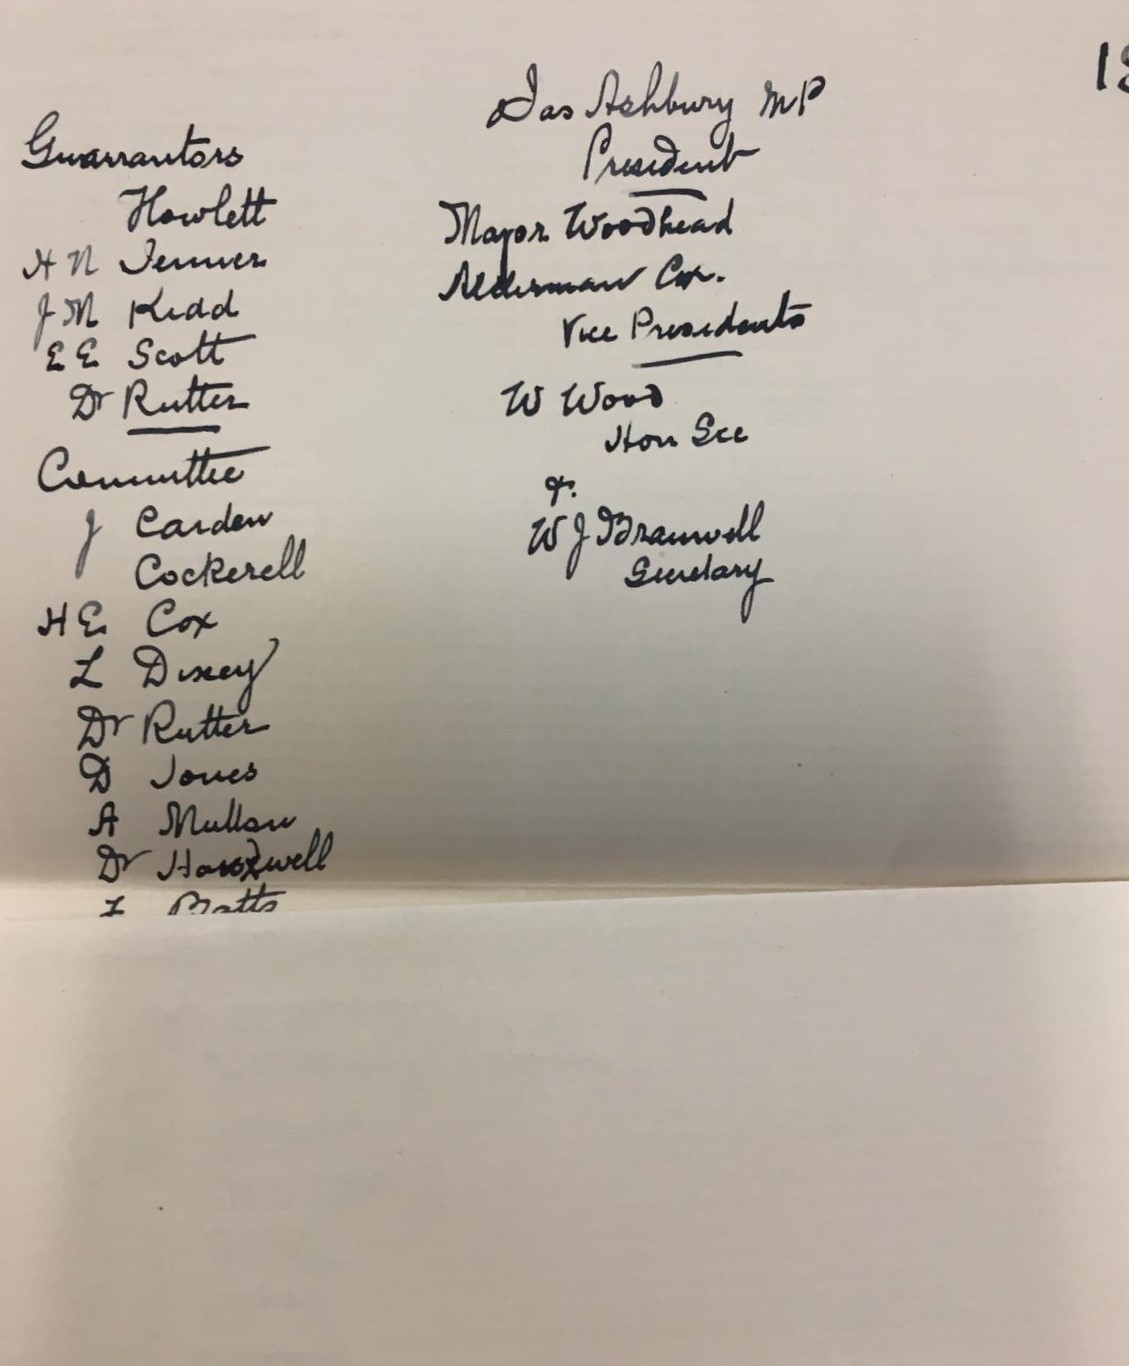 Guarrantors
Howlett
H N Jenner
J M Kidd
E E Scott
Dr Rutter
Committee
J Carden
Cockerell
H E Cox
L Dixey
Dr Rutter
D Jones
A Mullen
Dr
Batts
Jas Ashbury MP
President
Major Woodhead
Alderman Cox.
Vice Presidents
W Wood
Hon Sec
&
W J Bramwell
Secretary